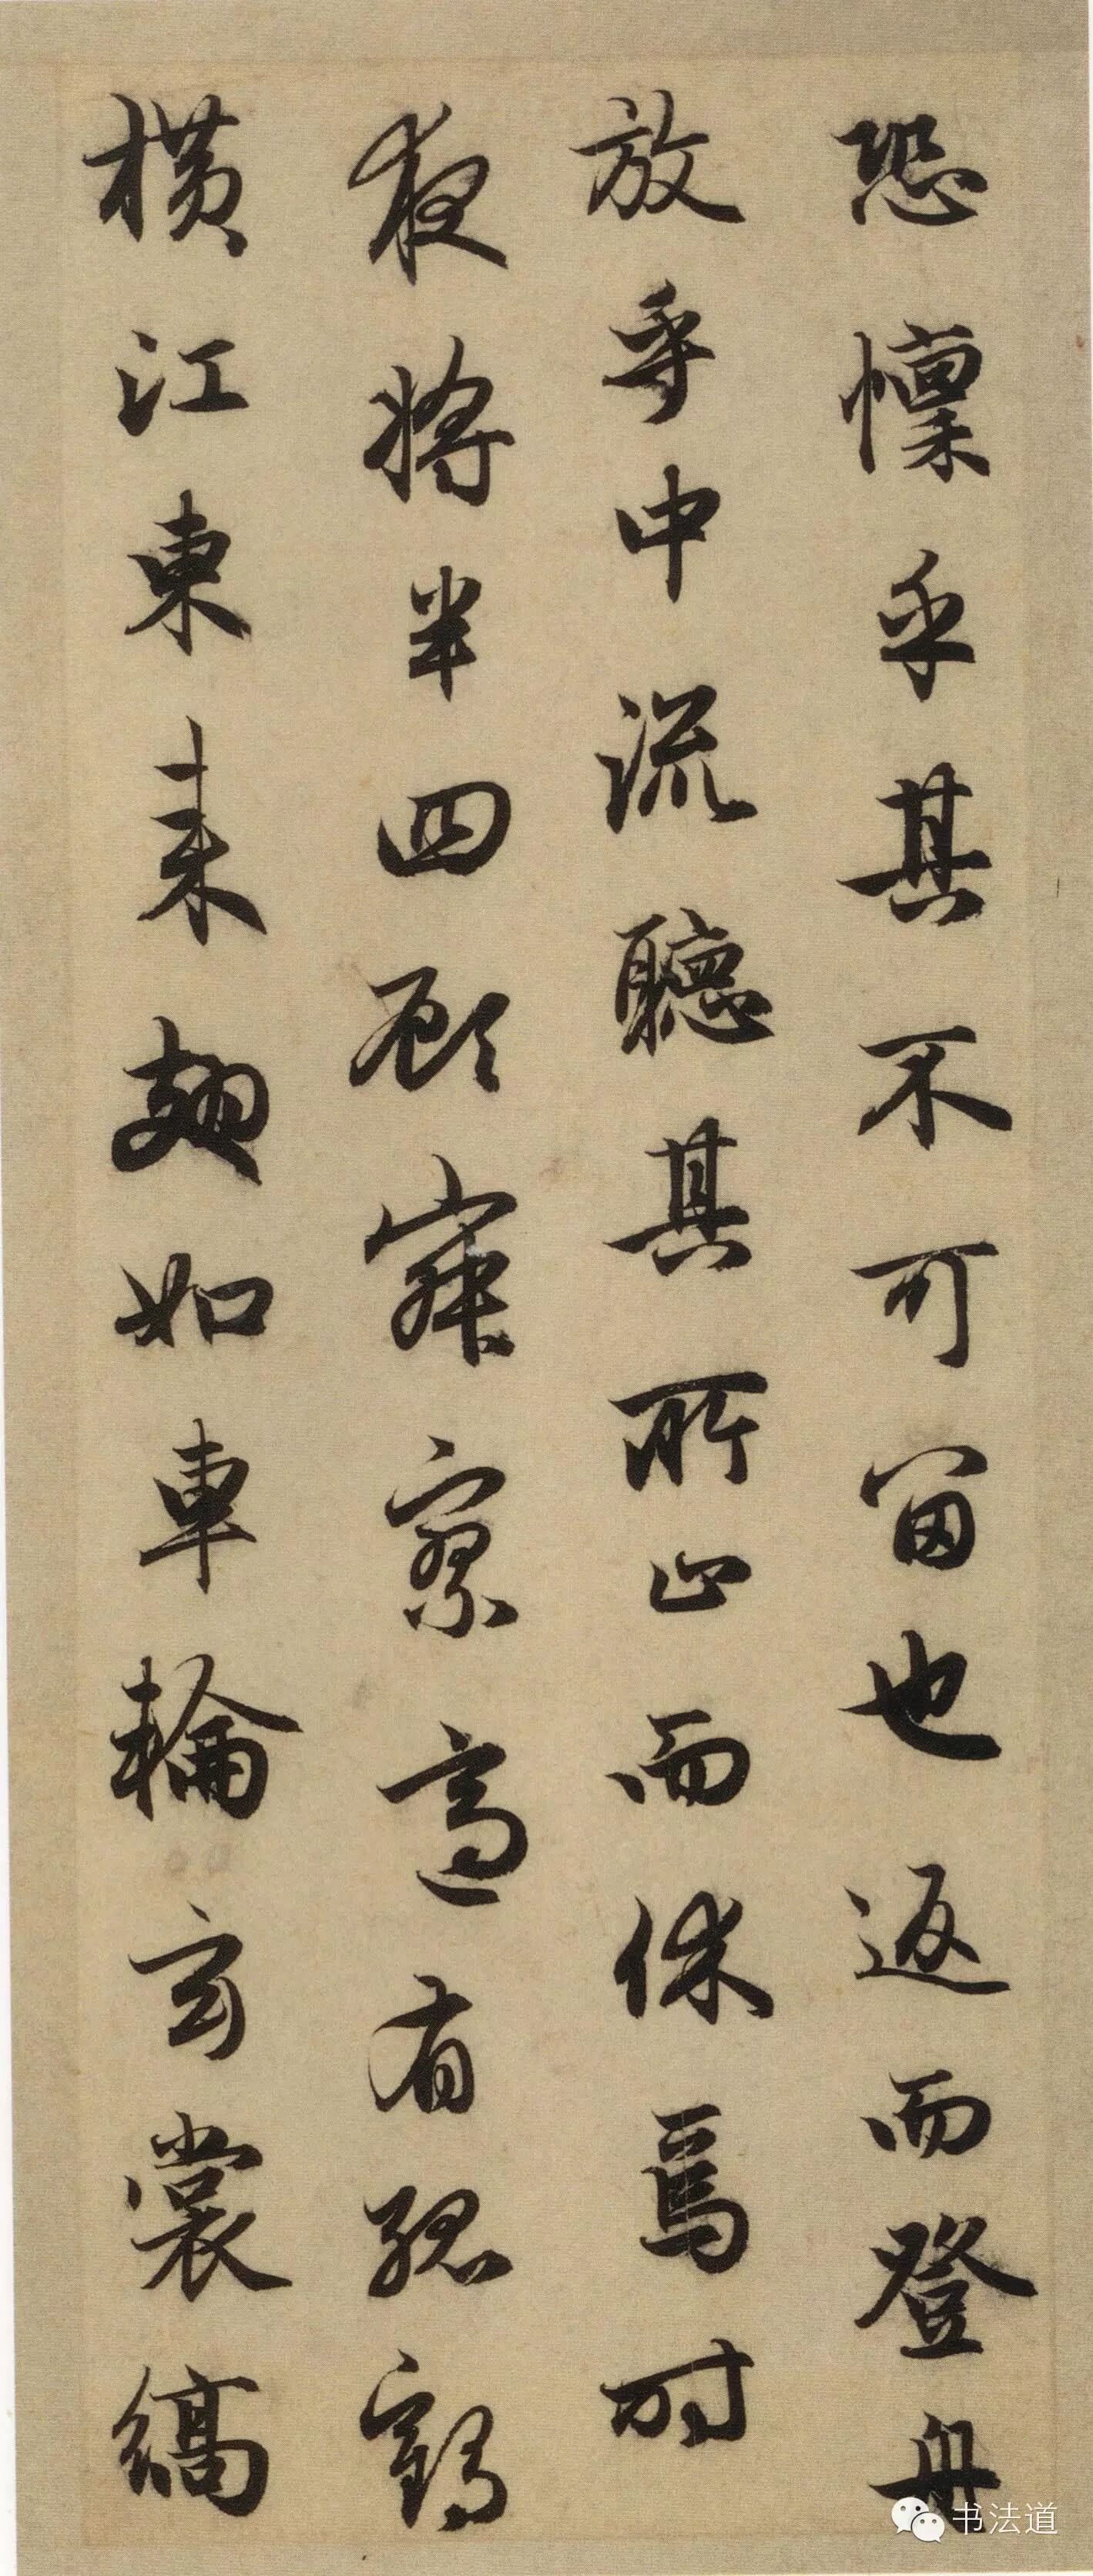 恐懍乎其不可留也返而登舟
放乎中流聽其所止而休焉時
夜將半四顧寂寥適有孤鶴
橫江東來翅如車輪玄裳縞
书法道